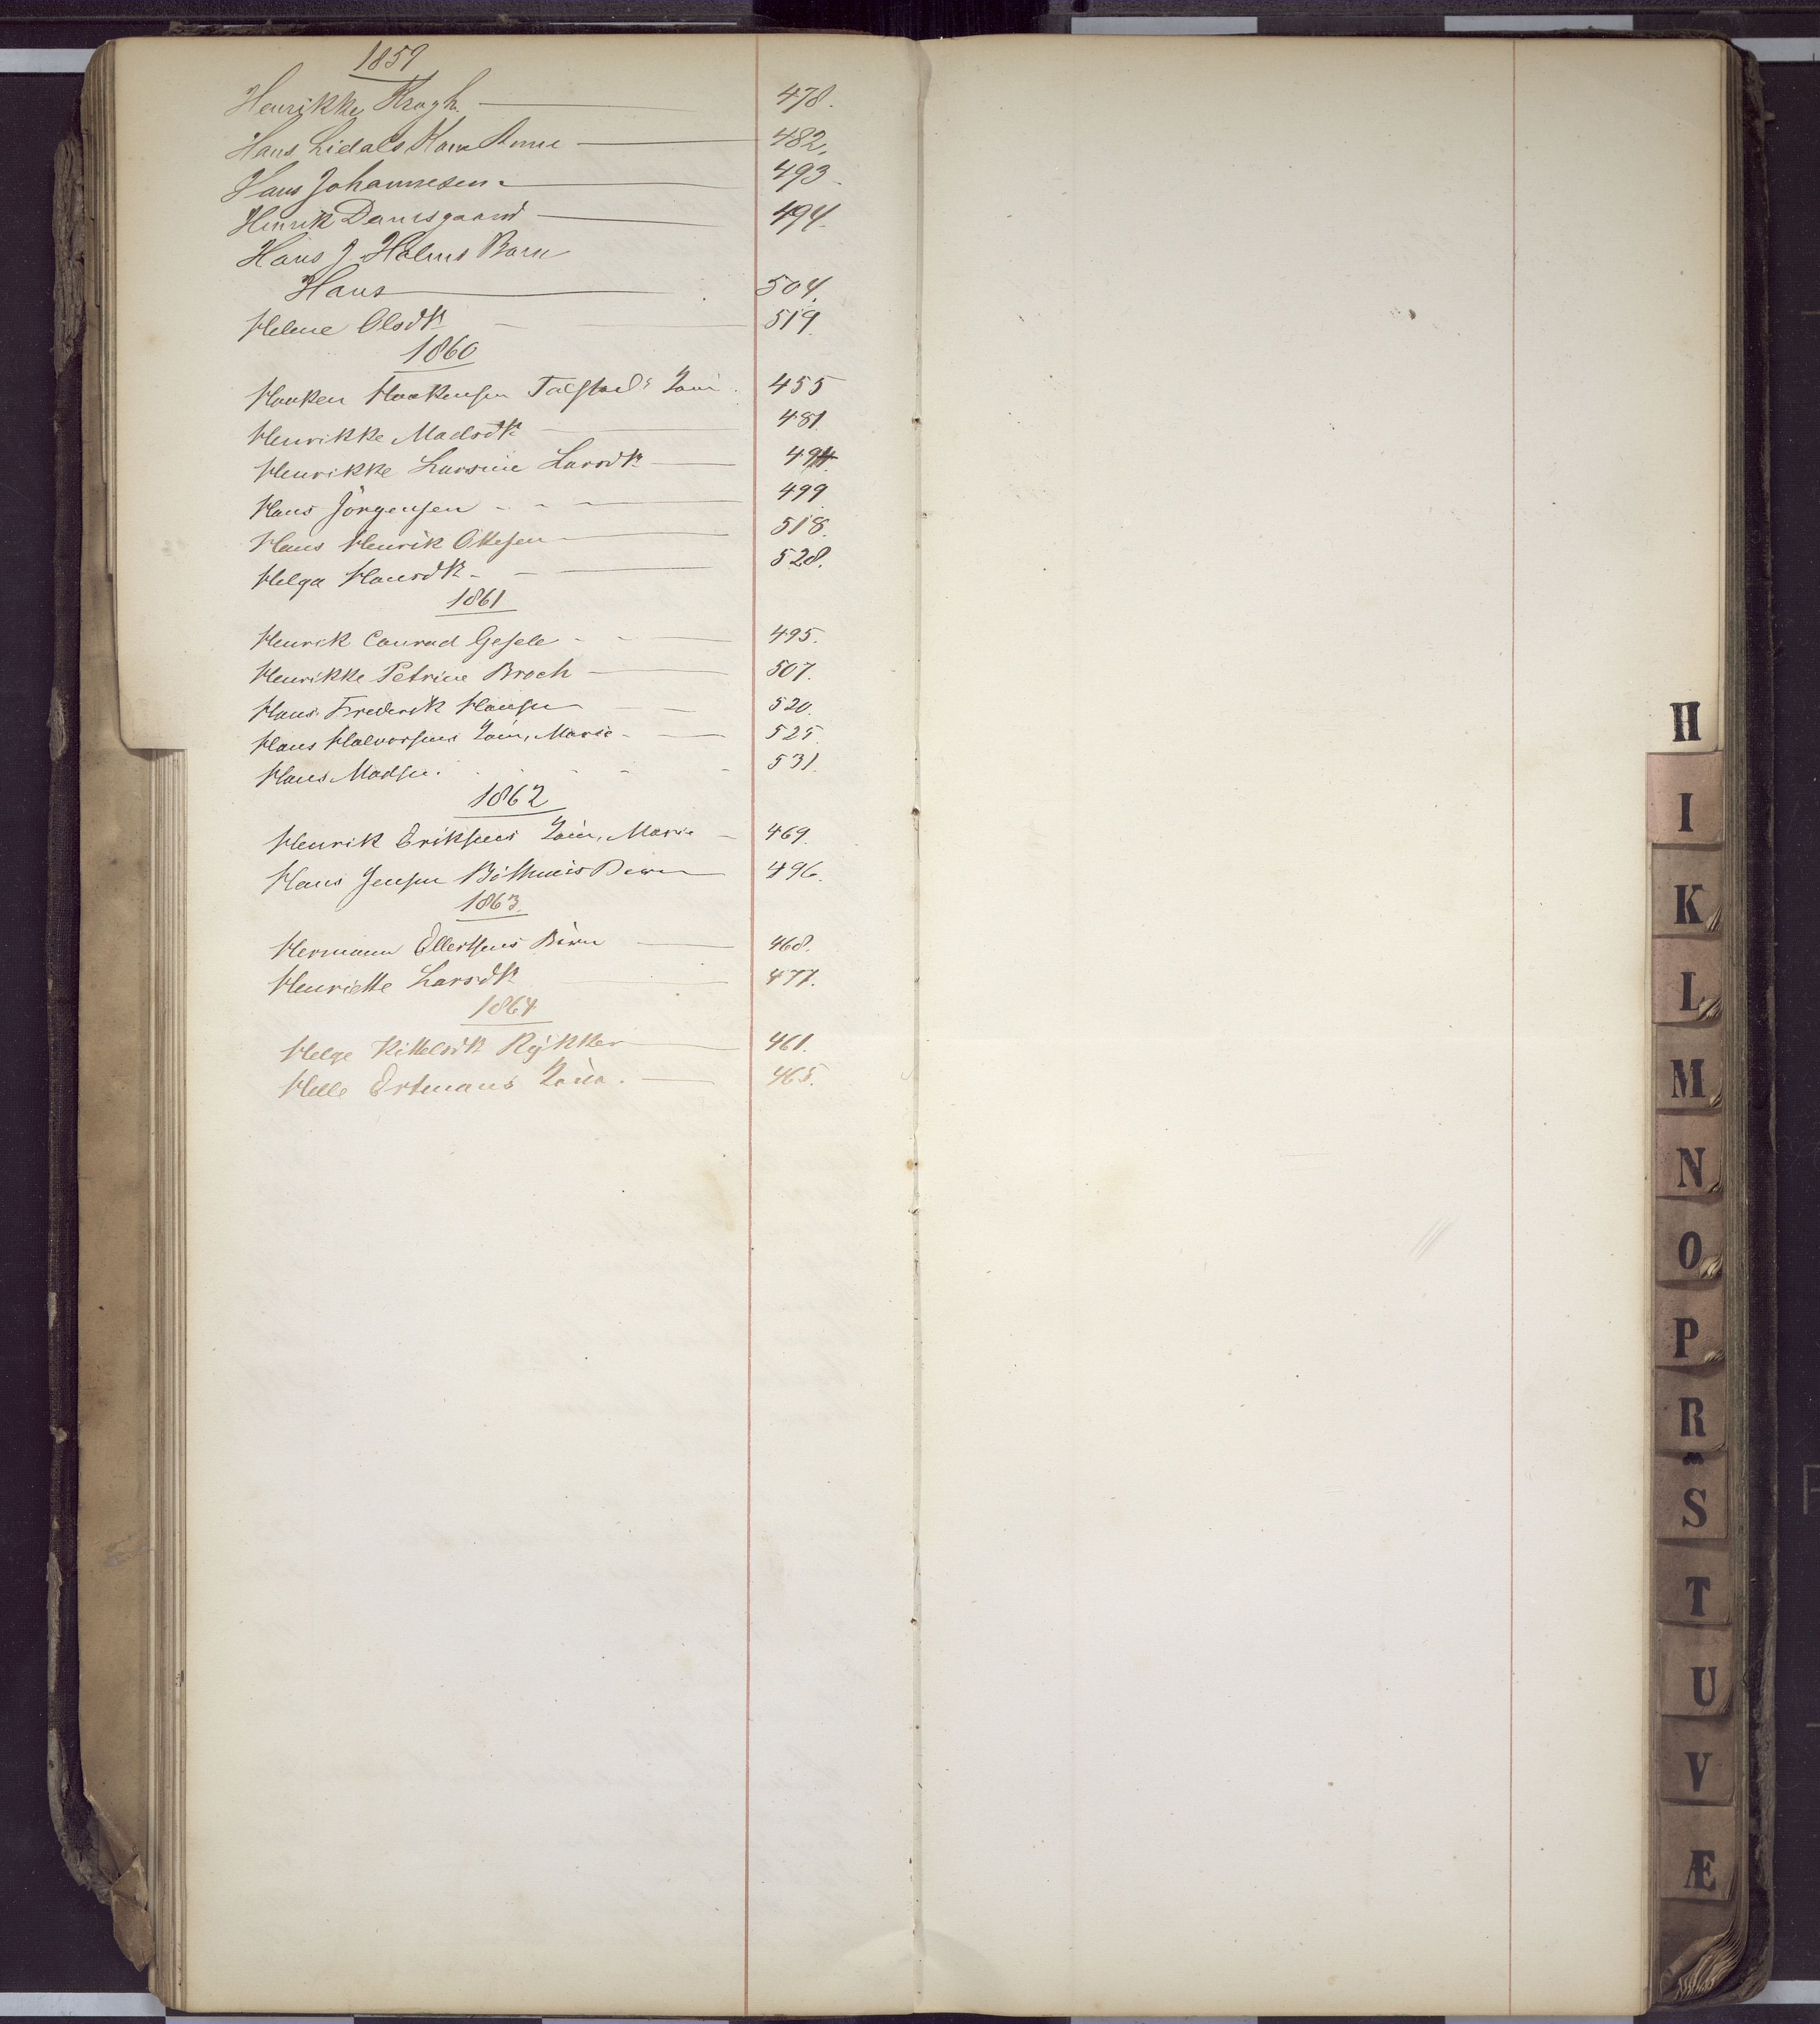 1859
Henrikke Krogh. 478.
Hans Lidals Kone Anne 482.
Hans Johannesen 493.
Henrik Damsgaard 494.
Hans J. Holms Barn
Hans 504.
Helene Olsdtr 519.
1860
Haaken Haakensen 455
Henrikke Madsdtr 481.
Henrikke Larsine Larsdtr 494.
Hans Jörgensen 499
Hans Henrik Ottesen 518.
Helga Hansdtr 528.
1861
Henrik Conrad Gesele 495.
Henrikke Petrine Broch 507.
Hans Frederik Hansen 520.
Hans Halvorsens Kone, Marie 525.
Hans Madsen. 531.
1862
Henrik Eriksens Kone, Marie 469.
Hans Jensen 496.
1863.
Hermann Ellertsens Börn 468.
Henriette Larsdtr 477.
1864
Helge Kittelsdtr Rykker 461.
Helle Ertmans Kone. 465.
H
I
K
L
M
N
O
P
R
S
T
U
V
Æ